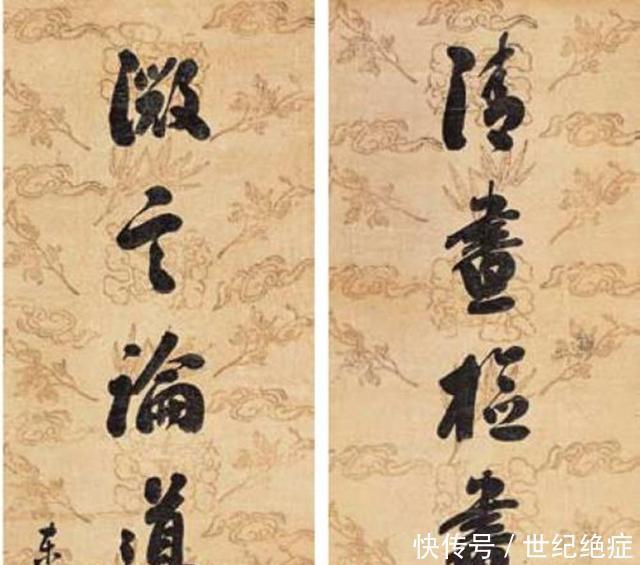 清晝檢書
微言論道
東
快传号／世纪绝症